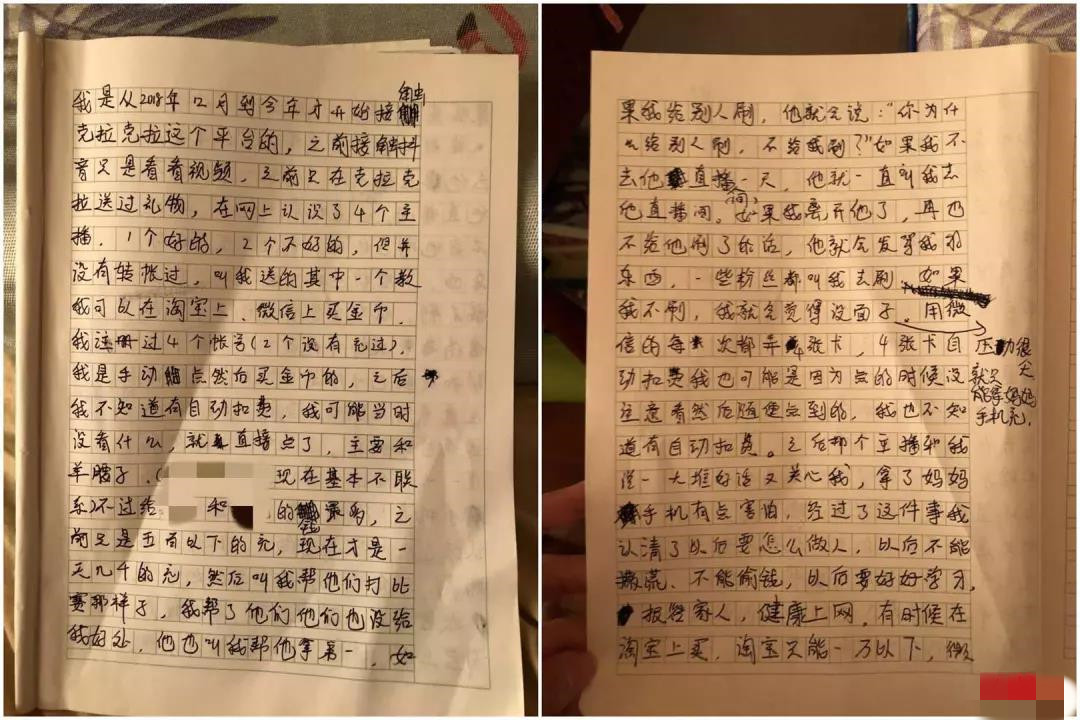 我是从2018年12月到今年才开始接触
克拉克拉这个平台的，之前接触抖
音只是看看视频，之前只在克拉克
拉送过礼物，在网上认识了4个主
播，1个好的，2个不好的，但并
没有转帐过，叫我送的其中一个教
我可以在淘宝上、微信上买金币，
我注册过4个帐号（2个没有充过），
我是手动点然后买金币的，之后
我不知道有自动扣费，我可能当时
没看什么，就直接点了，主要和
羊腰子，（ 现在基本不联
系）不过给 和 的钱最多，之
前只是五百以下的充，现在才是一
天几千的充，然后叫我帮他们打比
赛那样子，我帮了他们他们也没给
我好处，他也叫我帮他拿第一，如
果我给别人刷，他就会说："你为什
么给别人刷，不给我刷？"如果我不
去他直播间一天，他就一直叫我去
他直播间，如果我离开他了，再也
不给他刷了的话，他就会发骂我的
东西，一些粉丝都叫我去刷，如果
我不刷，我就会觉得没面子，用微
压力很大
就只
能拿妈妈
手机充，
信的每次都弄4张卡，4张卡自
动扣费我也可能是因为点的时候没
注意看然后随便点到的，我也不知
道有自动扣费。之后那个主播和我
说一大堆好话又关心我，拿了妈妈
手机有点害怕，经过了这件事我
认清了以后要怎么做人，以后不能
撒谎、不能偷钱，以后要好好学习，
报答家人，健康上网，有时候在
淘宝上买，淘宝只能一万以下，微